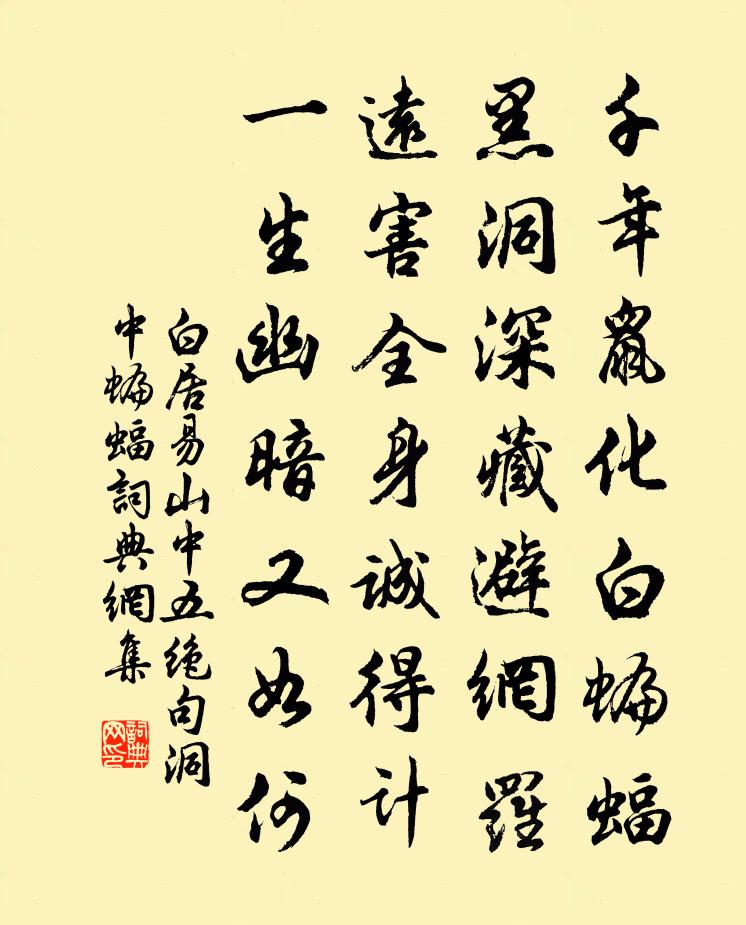 千年鼠化白蝙蝠
黑洞深藏避網羅
遠害全身誠得計
一生幽暗又如何
白居易山中五絶句洞
中蝙蝠詞典網集
詞典
网印